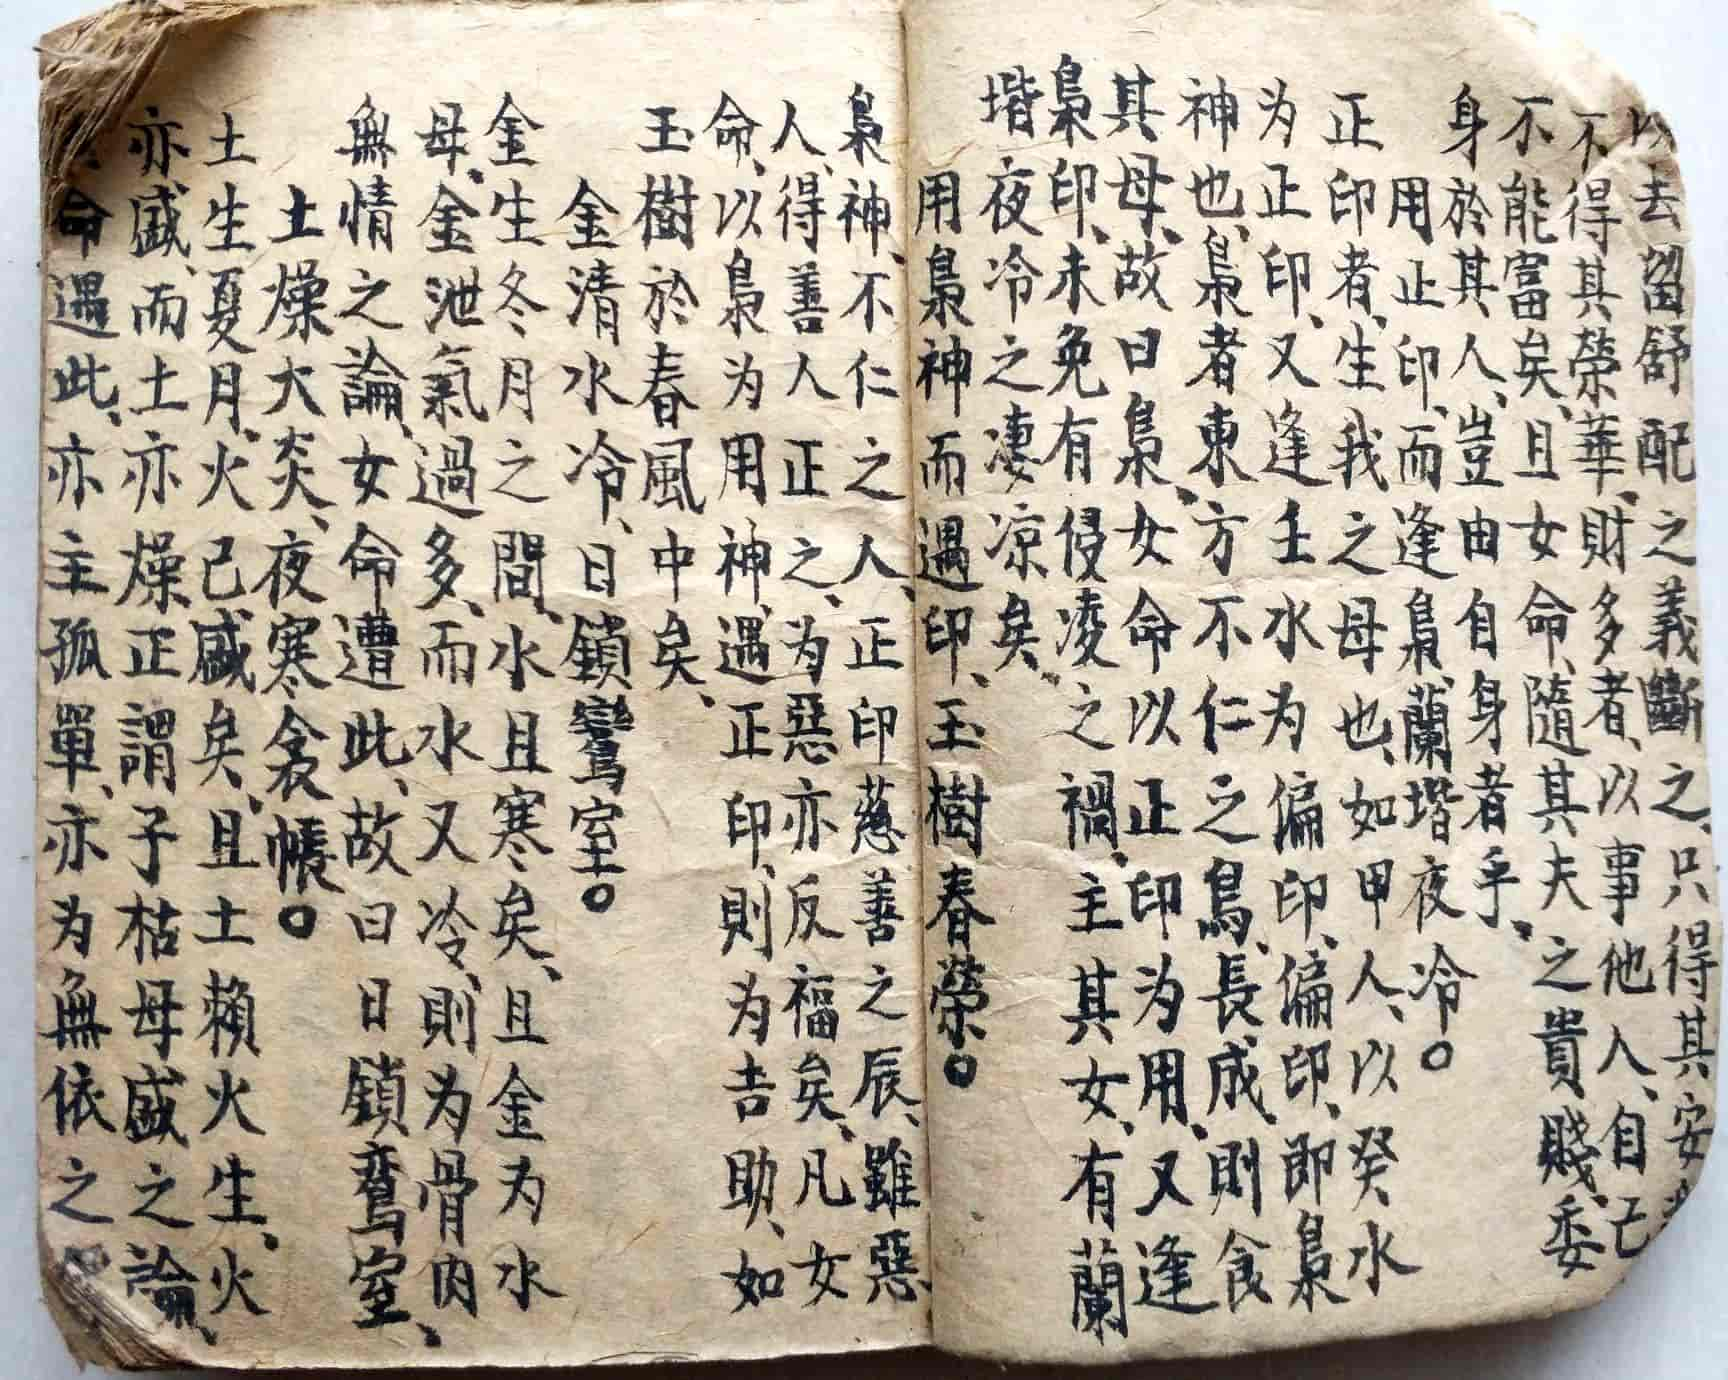 以去留舒配之義斷之、只得其安
不得其榮華、財多者、以事他人、自己
不能富矣、且女命、隨其夫之貴賤、委
身於其人、豈由自身者乎、
用正印、而逢梟、蘭堦夜冷○
正印者、生我之母也、如甲人、以癸水
为正印、又逢壬水为偏印、偏印、即梟
神也、梟者東方不仁之鳥、長成、則食
其母、故曰梟、女命以正印为用、又逢
梟印、未免有侵凌之禍、主其女、有蘭
堦夜冷之凄凉矣、
用梟神而遇印、玉樹春榮○
梟神、不仁之人、正印慈善之辰、雖惡
人、得善人正之、为惡亦反福矣、凡女
命、以梟为用神、遇正印、則为吉助、如
玉樹於春風中矣、
金清水冷、日鎖鸞室○
金生冬月之間、水且寒矣、且金为水
母、金泄氣過多、而水又冷、則为骨肉
無情之論、女命遭此、故曰日鎖鸾室、
土燥火炎、夜寒衾帳○
土生夏月、火已盛矣、且土賴火生、火
亦盛、而土亦燥、正謂子枯母盛之論、
命遇此、亦主孤單、亦为無依之